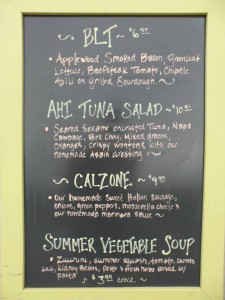 BLT ~ $6.95
• Applewood Smoked Bacon, Organic
Lettuce, Beefsteak Tomato, Chipotle
Aioli on Grilled Sourdough
AHI TUNA SALAD ~ $10.95
• Seared Sesame encrusted Tuna, Napa
Cabbage, Bok Choy, Mixed greens,
Oranges, Crispy Wontons with our
homemade Asian dressing ~
~ CALZONE ~ $9.95
• Our homemade Sweet Italian Sausage,
onions, green peppers, mozzarella cheese &
our homemade marinara sauce ~
SUMMER VEGETABLE SOUP
• Zucchini, summer squash, tomato, carrots
Kidney Beans, Pesto & fresh herbs served w/
pasta ~ $3.99